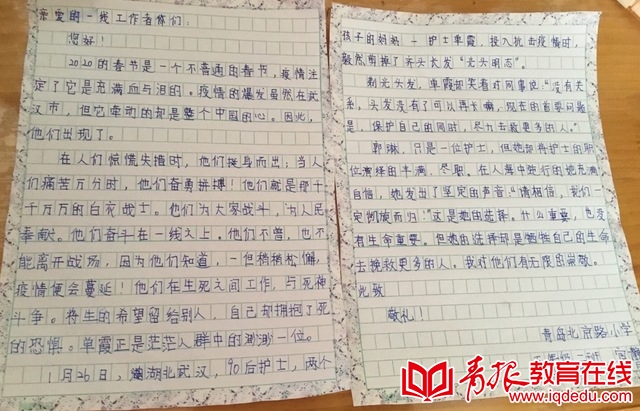 亲爱的一线工作者你们:
您好!
2020的春节是一个不普通的春节,疫情注
定了它是充满血与泪的。疫情的爆发虽然在武
汉市,但它牵动的却是整个中国的心。因此,
他们出现了。
在人们惊慌失措时,他们挺身而出;当人
们痛苦万分时,他们奋勇拼搏!他们就是那千
千万万的白衣战士。他们为大家战斗,为人民
奉献。他们奋斗在一线之上。他们不曾,也不
能离开战场,因为他们知道,一但稍稍松懈,
疫情便会蔓延!他们在生死之间工作,与死神
斗争。将生的希望留给别人,自己却拥抱了死
的恐惧。单霞正是茫茫人群中的渺渺一位。
1月26日,湖北武汉,90后护士,两个
孩子的妈妈-护士单霞,投入抗击疫情时,
毅然剪掉了齐头长发“光头明志”。
剃光头发,单霞却笑着对同事说:“没有关
系,头发没有了可以再长嘛,现在的首要问题
是,保护自己的同时,尽力去救更多的人。”
郭琳,只是一位护士,但她却将护士的职
位演绎的丰满、尽职。在人群中逆行的她充满
自信,她发出了坚定的声音:“请相信,我们一
定凯旋而归!”这是她的选择。什么重要,也没
有生命重要。但她的选择却是牺牲自己的生命
去挽救更多的人。我对他们有无限的崇敬。
此致
敬礼!
青岛北京路小学
青报教育在线
www.iqdedu.com